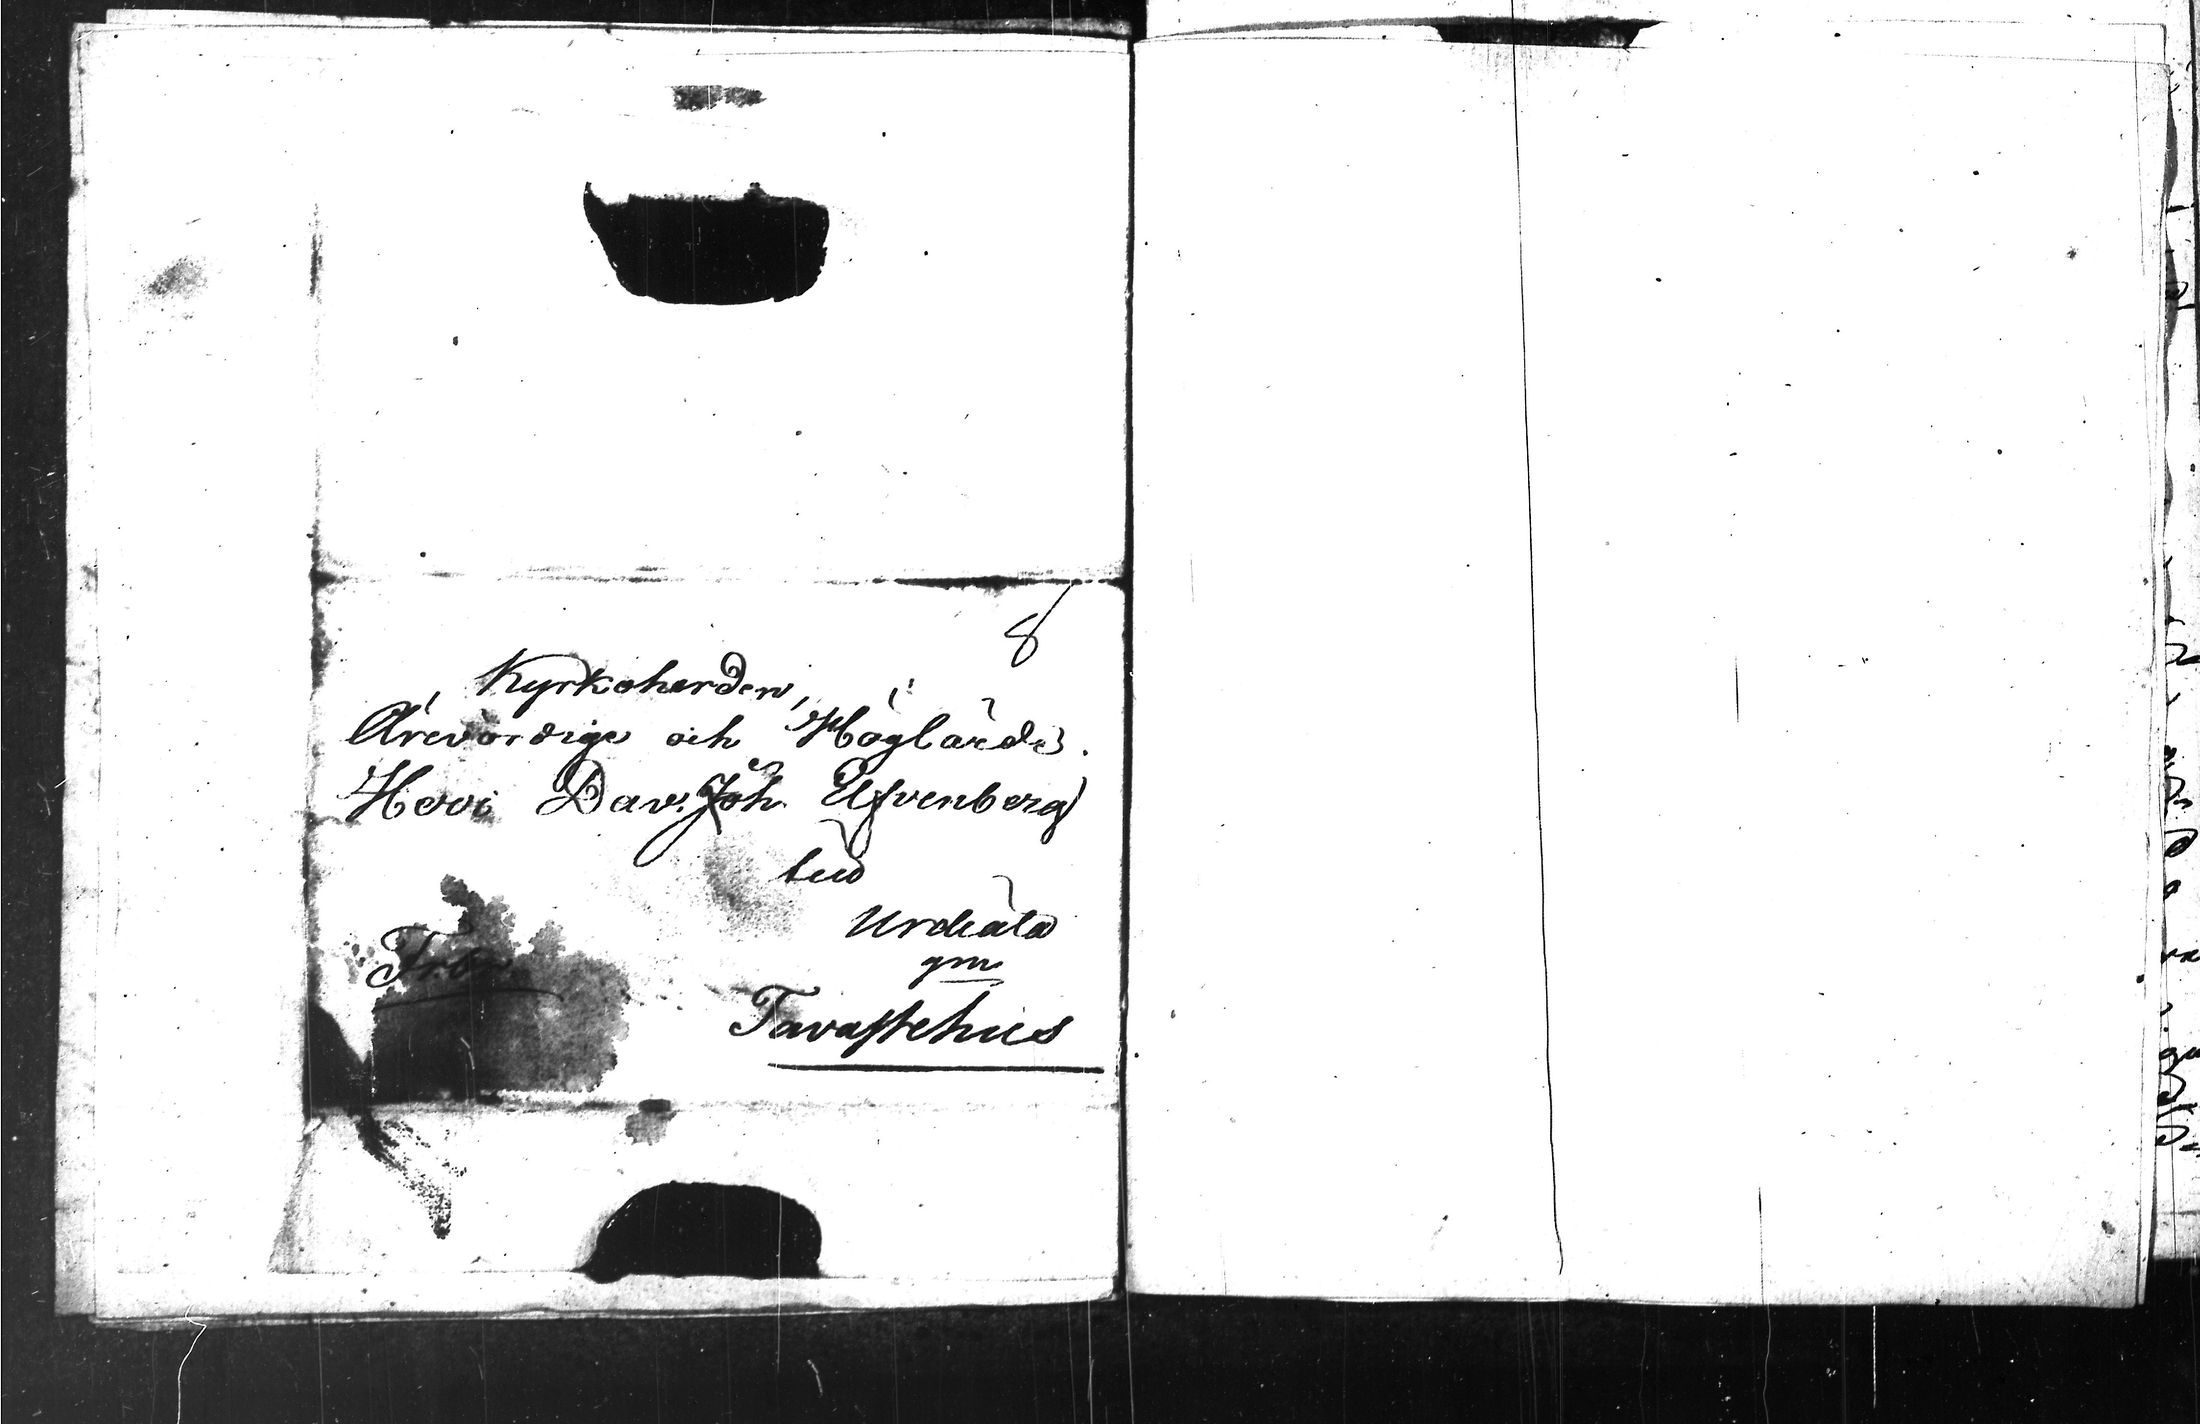 8
Kyrkoherden,
Ärevördige och Höglärde.
Herr Dav. Joh. Elfvenberg
Urdiala
gm
Tavastehus